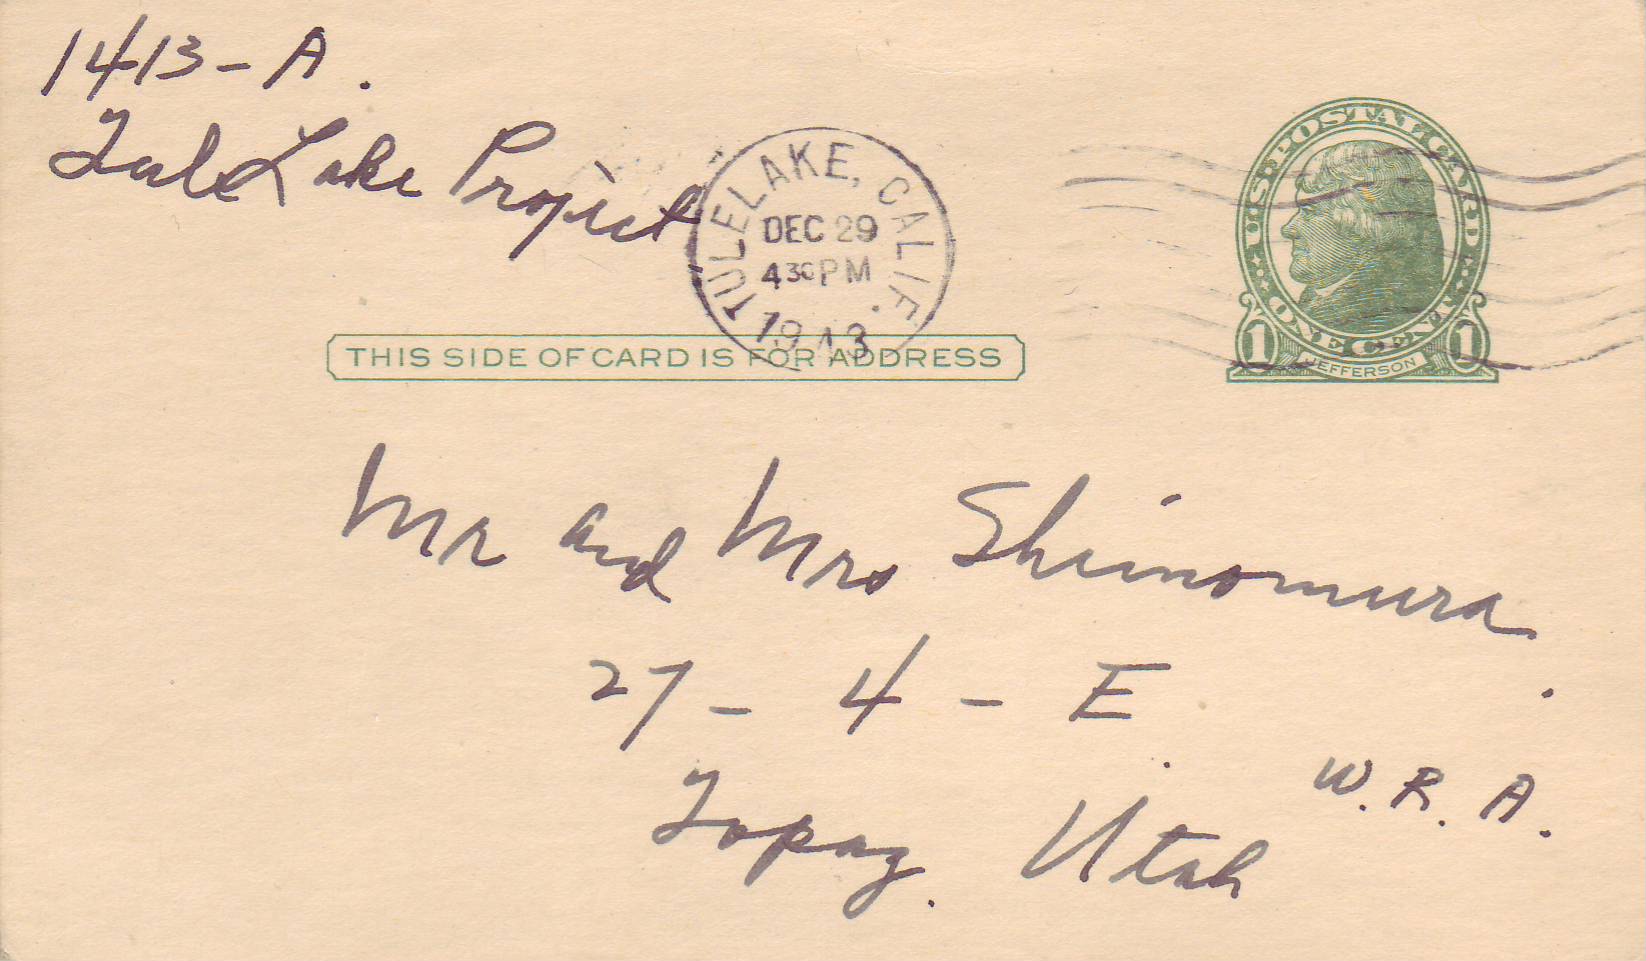 1413-A.
Tule Lake Project
TULELAKE, CALIF.
DEC 29
430 PM
1943
U.S. POSTAL CARD
ONE CENT
1 1
JEFFERSON
THIS SIDE OF CARD IS FOR ADDRESS
Mr and Mrs Shimomura
27 - 4 - E.
W.R.A.
Topaz. Utah